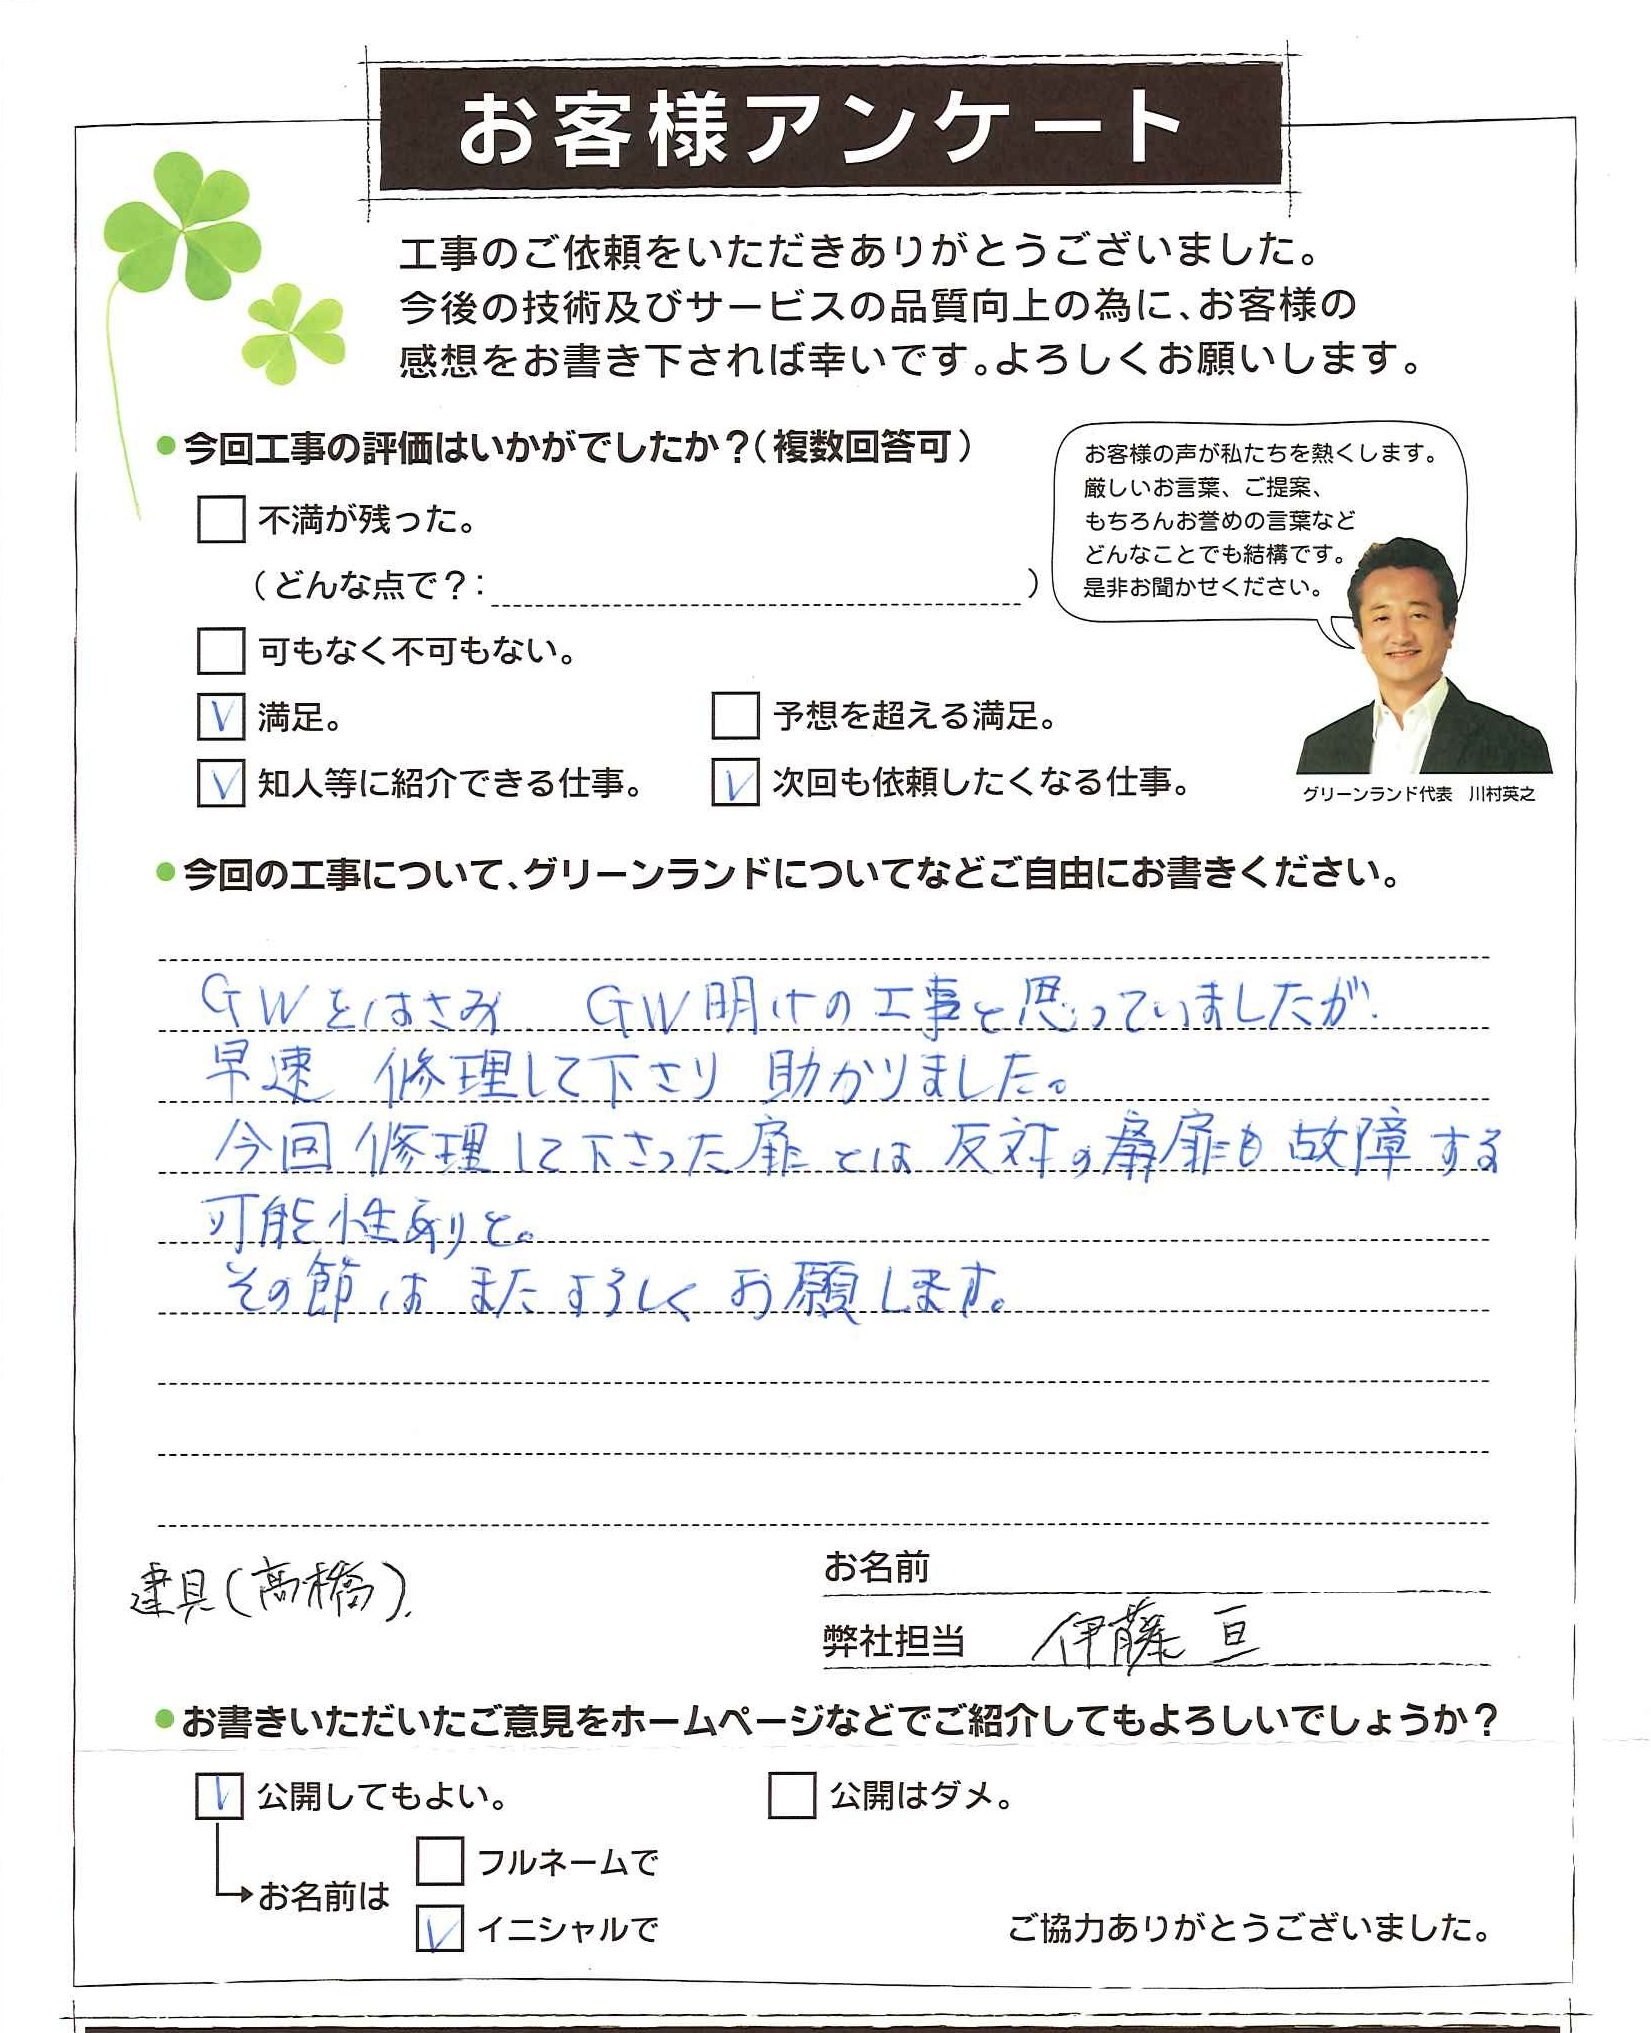 お客様アンケート
工事のご依頼をいただきありがとうございました。
今後の技術及びサービスの品質向上の為に、お客様の
感想をお書き下されば幸いです。よろしくお願いします。
●今回工事の評価はいかがでしたか？（複数回答可）
不満が残った。
（どんな点で？： ）
可もなく不可もない。
V 満足。
予想を超える満足。
V 知人等に紹介できる仕事。
V 次回も依頼したくなる仕事。
お客様の声が私たちを熱くします。
厳しいお言葉、ご提案、
もちろんお誉めの言葉など
どんなことでも結構です。
是非お聞かせください。
グリーンランド代表　川村英之
●今回の工事について、グリーンランドについてなどご自由にお書きください。
GWをはさみ　GW明けの工事と思っていましたが
早速 修理して下さり 助かりました。
今回 修理して下さった扉とは 反対の扉も故障する
可能性ありと。
その節は またよろしく お願します。
建具（高橋）
お名前
弊社担当　伊藤 亘
●お書きいただいたご意見をホームページなどでご紹介してもよろしいでしょうか？
V 公開してもよい。
公開はダメ。
お名前は
フルネームで
V イニシャルで
ご協力ありがとうございました。